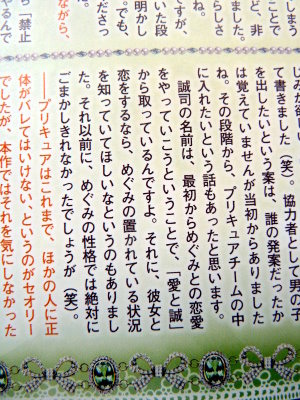 じみ欲し
て書きました（笑）。協力者として男の子
を出したいという案は、誰の発案だったか
は覚えていませんが当初からありました
ね。その段階から、プリキュアチームの中
に入れたいという話もあったと思います。
誠司の名前は、最初からめぐみとの恋愛
をやっていこうということで、「愛と誠」
から取っているんですよ。それに、彼女と
恋をするなら、めぐみの置かれている状況
を知っていてほしいなというのもありまし
た。それ以前に、めぐみの性格では絶対に
ごまかしきれなかったでしょうが（笑）。
――プリキュアはこれまで、ほかの人に正
体がバレてはいけない、というのがセオリー
でしたが、本作ではそれを気にしなかった
ながら、
ださっ
ても、
明かし
いた段
すが、
らしさ
ました。
ど、非
しまう
「禁止
やるんで